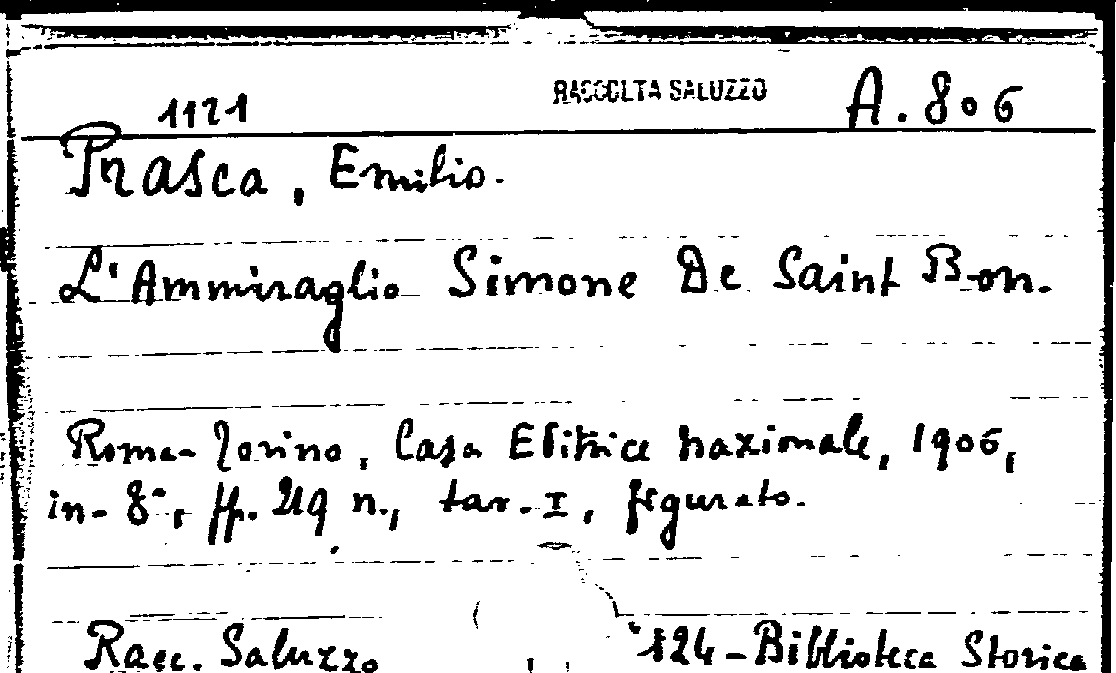 1121 RACCOLTA SALUZZO A. 806
Prasca, Emilio.
L'Ammiraglio Simone De Saint Bon.
Roma-Torino, Casa Editrice Nazionale, 1906,
in-8°, pp. 219 n., tav. I, figurato.
Racc. Saluzzo 124-Biblioteca Storica